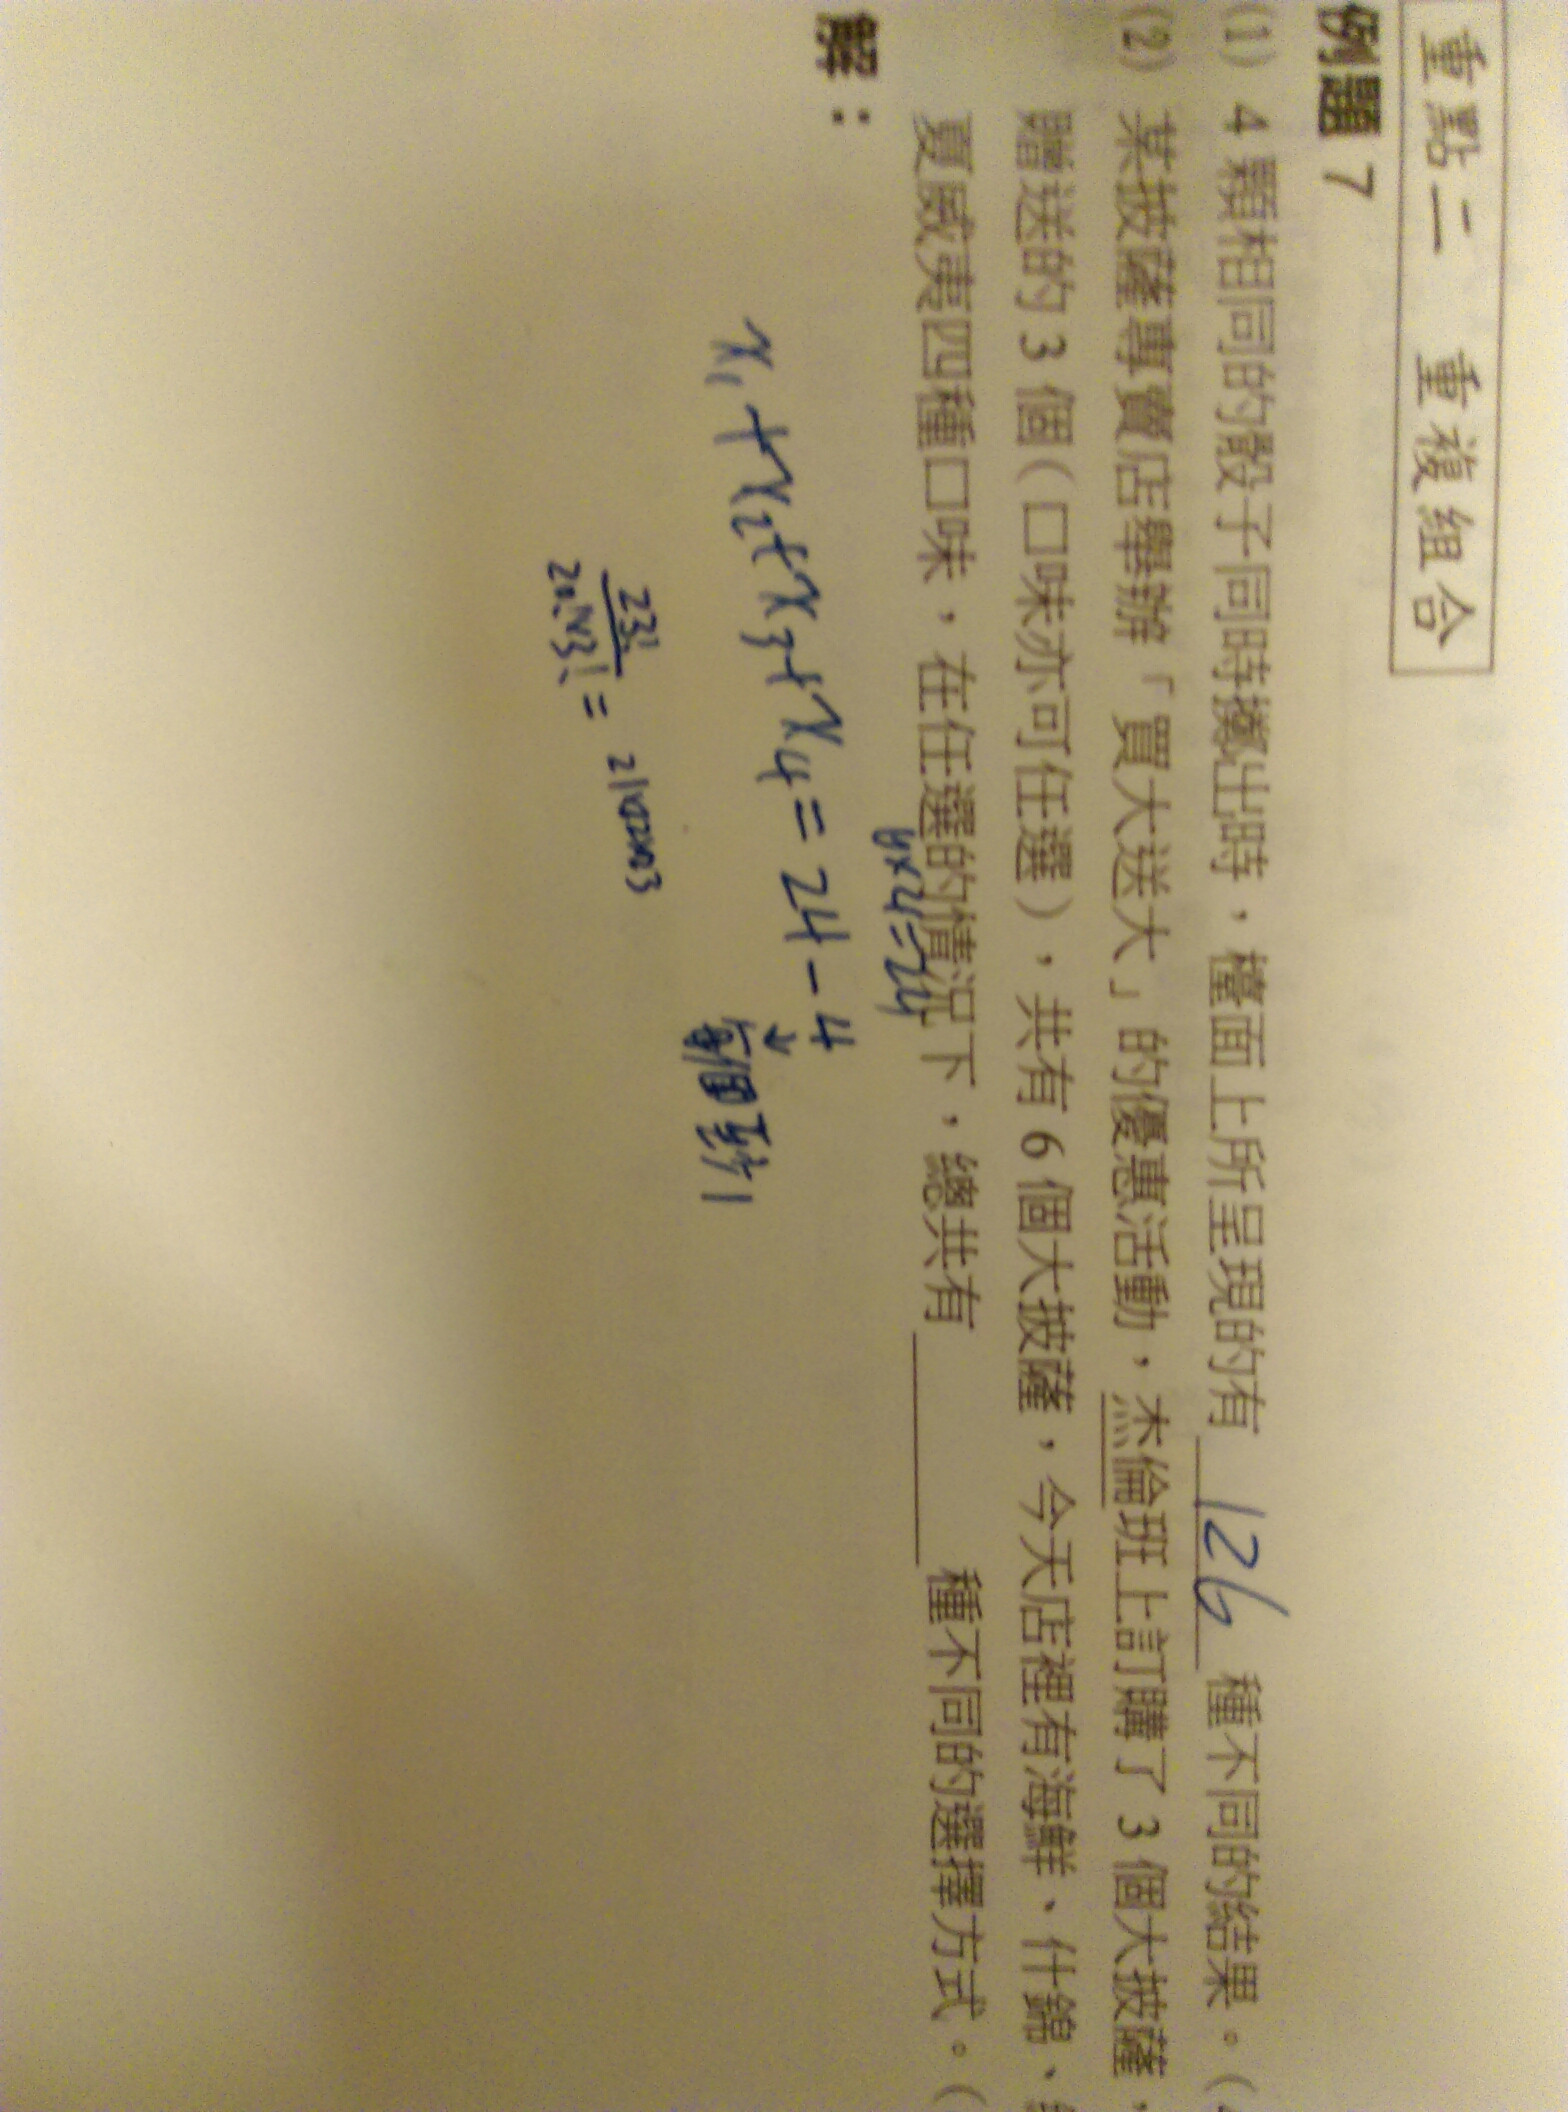 重點二 重複組合
例題 7
(1) 4 顆相同的骰子同時擲出時，檯面上所呈現的有 126 種不同的結果。(
(2) 某披薩專賣店舉辦「買大送大」的優惠活動，杰倫班上訂購了 3 個大披薩，
贈送的 3 個（口味亦可任選），共有 6 個大披薩，今天店裡有海鮮、什錦、
夏威夷四種口味，在任選的情況下，總共有 種不同的選擇方式。(
6×4=24
解：
x₁+x₂+x₃+x₄=24-4
↓
每個至少1
23!/20!×3! =